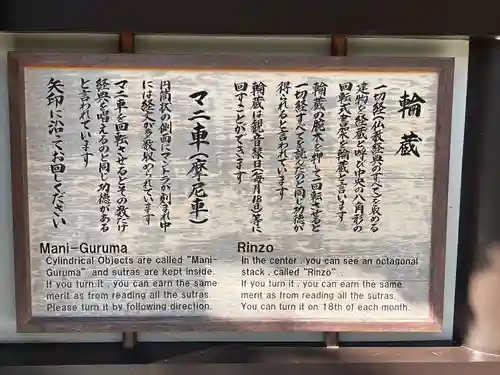 輪蔵
一切経(仏教経典のすべて)を収める
建物を経蔵と呼び中央の八角形の
回転式書架を輪蔵と言います
輪蔵の腕木を押して回転させると
一切経すべてを読んだのと同じ功徳が
得られると言われています
輪蔵は観音縁日(毎月18日)等に
回すことができます
マニ車(摩尼車)
円筒状の側面にマントラが刻まれ中
には経文が多数収められています
マニ車を回転させるとその数だけ
経典を唱えるのと同じ功徳がある
と言われています
矢印に沿ってお回しください
Mani-Guruma
Cylindrical Objects are called "Mani-
Guruma" and sutras are kept inside.
If you turn it , you can earn the same
merit as from reading all the sutras.
Please turn it by following direction.
Rinzo
In the center , you can see an octagonal
stack , called "Rinzo" .
If you turn it , you can earn the same
merit as from reading all the sutras.
You can turn it on 18th of each month.